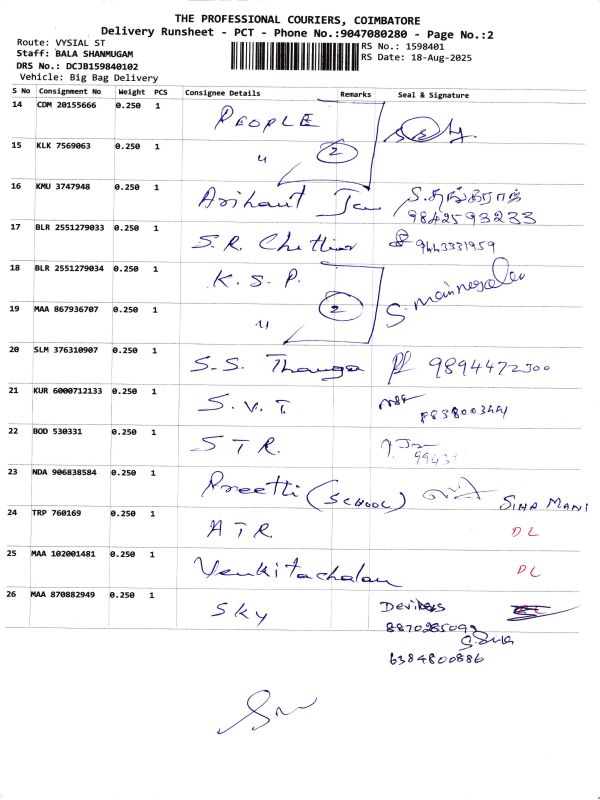 THE PROFESSIONAL COURIERS, COIMBATORE
Delivery Runsheet - PCT - Phone No.:9047080280 - Page No.:2
Route: VYSIAL ST
Staff: BALA SHANMUGAM
DRS No.: DCJB159840102
Vehicle: Big Bag Delivery
RS No.: 1598401
RS Date: 18-Aug-2025
S No Consignment No Weight PCS Consignee Details Remarks Seal & Signature
14 CDM 20155666 0.250 1 PEOPLE
15 KLK 7569063 0.250 1 " 2
16 KMU 3747948 0.250 1 Arihant
9842593233
17 BLR 2551279033 0.250 1 S.R. Chettiar 9443331959
18 BLR 2551279034 0.250 1 K.S.P.
19 MAA 867936707 0.250 1 " 2
20 SLM 376310907 0.250 1 S.S. Thanga 9894472300
21 KUR 6000712133 0.250 1 S.V.T.
22 BOD 530331 0.250 1 STR.
23 NDA 906838584 0.250 1 Preethi (SCHOOL) SIHA MANI
24 TRP 760169 0.250 1 ATR DL
25 MAA 102001481 0.250 1 Venkitachalam DL
26 MAA 870882949 0.250 1 SKY
6384800886